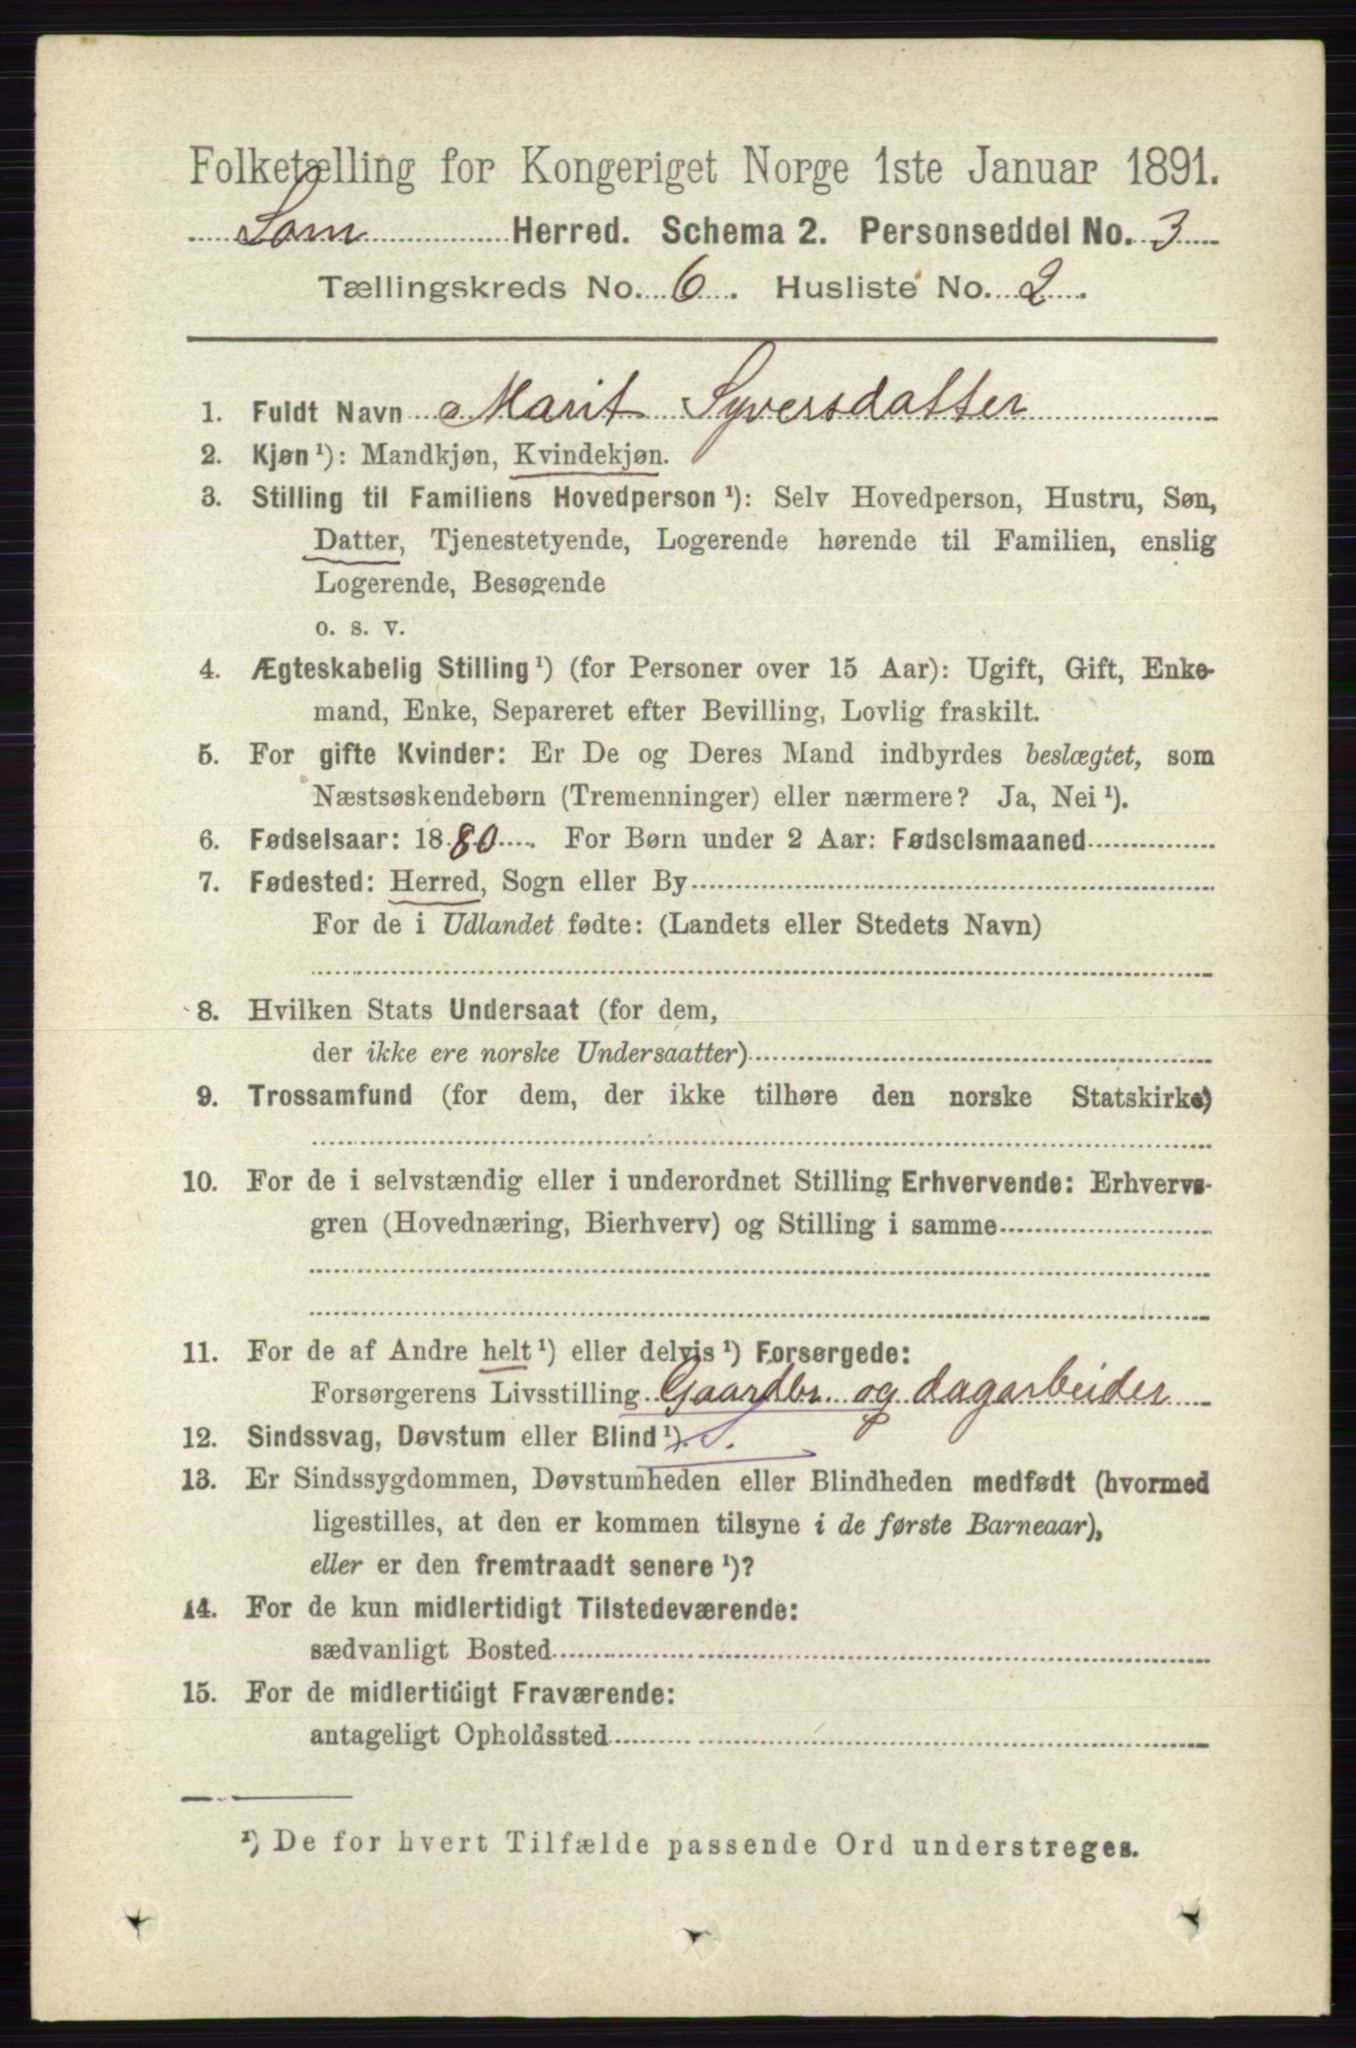 Folketælling for Kongeriget Norge 1ste Januar 1891.
Lom Herred. Schema 2. Personseddel No. 3
Tællingskreds No. 6. Husliste No. 2.
1. Fuldt Navn Marit Syversdatter
2. Kjøn ¹): Mandkjøn, Kvindekjøn.
3. Stilling til Familiens Hovedperson ¹): Selv Hovedperson, Hustru, Søn,
Datter, Tjenestetyende, Logerende hørende til Familien, enslig
Logerende, Besøgende
o. s. v.
4. Ægteskabelig Stilling ¹) (for Personer over 15 Aar): Ugift, Gift, Enke-
mand, Enke, Separeret efter Bevilling, Lovlig fraskilt.
5. For gifte Kvinder: Er De og Deres Mand indbyrdes beslægtet, som
Næstsøskendebørn (Tremenninger) eller nærmere? Ja, Nei ¹).
6. Fødselsaar: 1880. For Børn under 2 Aar: Fødselsmaaned
7. Fødested: Herred, Sogn eller By
For de i Udlandet fødte: (Landets eller Stedets Navn)
8. Hvilken Stats Undersaat (for dem,
der ikke ere norske Undersaatter)
9. Trossamfund (for dem, der ikke tilhøre den norske Statskirke)
10. For de i selvstændig eller i underordnet Stilling Erhvervende: Erhvervs-
gren (Hovednæring, Bierhverv) og Stilling i samme
11. For de af Andre helt ¹) eller delvis ¹) Forsørgede:
Forsørgerens Livsstilling Gaardbr. og dagarbeider
12. Sindssvag, Døvstum eller Blind ¹). S.
13. Er Sindssygdommen, Døvstumheden eller Blindheden medfødt (hvormed
ligestilles, at den er kommen tilsyne i de første Barneaar),
eller er den fremtraadt senere ¹)?
14. For de kun midlertidigt Tilstedeværende:
sædvanligt Bosted
15. For de midlertidigt Fraværende:
antageligt Opholdssted
¹) De for hvert Tilfælde passende Ord understreges.